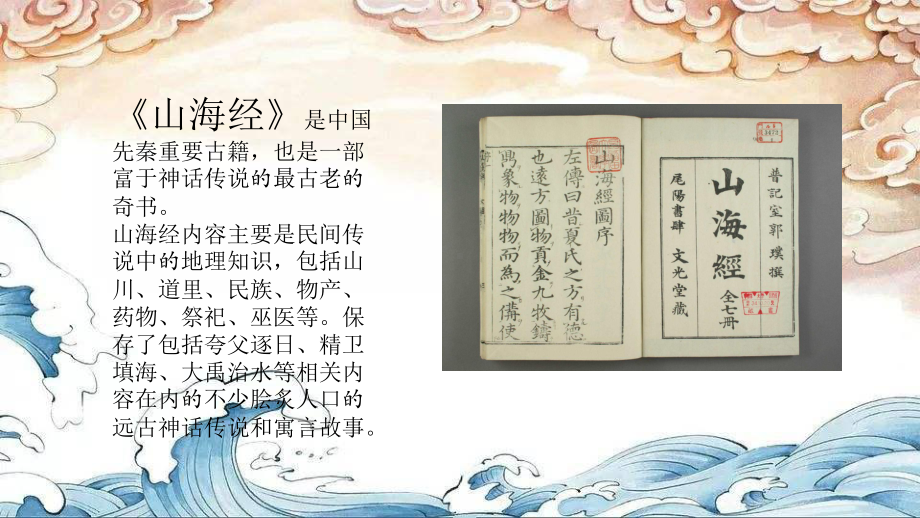 《山海经》是中国
先秦重要古籍，也是一部
富于神话传说的最古老的
奇书。
山海经内容主要是民间传
说中的地理知识，包括山
川、道里、民族、物产、
药物、祭祀、巫医等。保
存了包括夸父逐日、精卫
填海、大禹治水等相关内
容在内的不少脍炙人口的
远古神话传说和寓言故事。
晉記室郭璞撰
山海經
全七冊
尾陽書肆 文光堂藏
山海經圖序
左傳曰昔夏氏之方有德
也遠方圖物貢金九牧鑄
鼎象物物物而為之備使